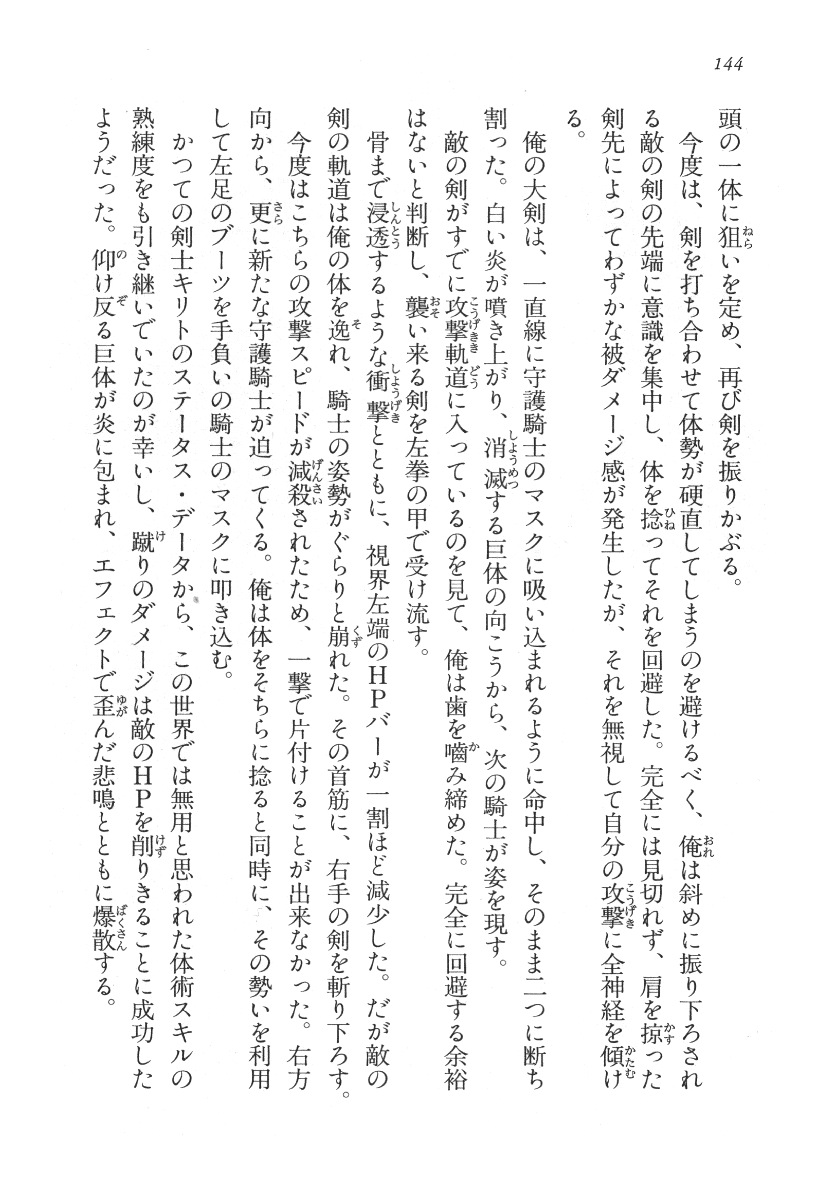 144
頭の一体に狙いを定め、再び剣を振りかぶる。
　今度は、剣を打ち合わせて体勢が硬直してしまうのを避けるべく、俺は斜めに振り下ろされ
る敵の剣の先端に意識を集中し、体を捻ってそれを回避した。完全には見切れず、肩を掠った
剣先によってわずかな被ダメージ感が発生したが、それを無視して自分の攻撃に全神経を傾け
る。
　俺の大剣は、一直線に守護騎士のマスクに吸い込まれるように命中し、そのまま二つに断ち
割った。白い炎が噴き上がり、消滅する巨体の向こうから、次の騎士が姿を現す。
　敵の剣がすでに攻撃軌道に入っているのを見て、俺は歯を嚙み締めた。完全に回避する余裕
はないと判断し、襲い来る剣を左拳の甲で受け流す。
　骨まで浸透するような衝撃とともに、視界左端のＨＰバーが一割ほど減少した。だが敵の
剣の軌道は俺の体を逸れ、騎士の姿勢がぐらりと崩れた。その首筋に、右手の剣を斬り下ろす。
　今度はこちらの攻撃スピードが減殺されたため、一撃で片付けることが出来なかった。右方
向から、更に新たな守護騎士が迫ってくる。俺は体をそちらに捻ると同時に、その勢いを利用
して左足のブーツを手負いの騎士のマスクに叩き込む。
　かつての剣士キリトのステータス・データから、この世界では無用と思われた体術スキルの
熟練度をも引き継いでいたのが幸いし、蹴りのダメージは敵のＨＰを削りきることに成功した
ようだった。仰け反る巨体が炎に包まれ、エフェクトで歪んだ悲鳴とともに爆散する。